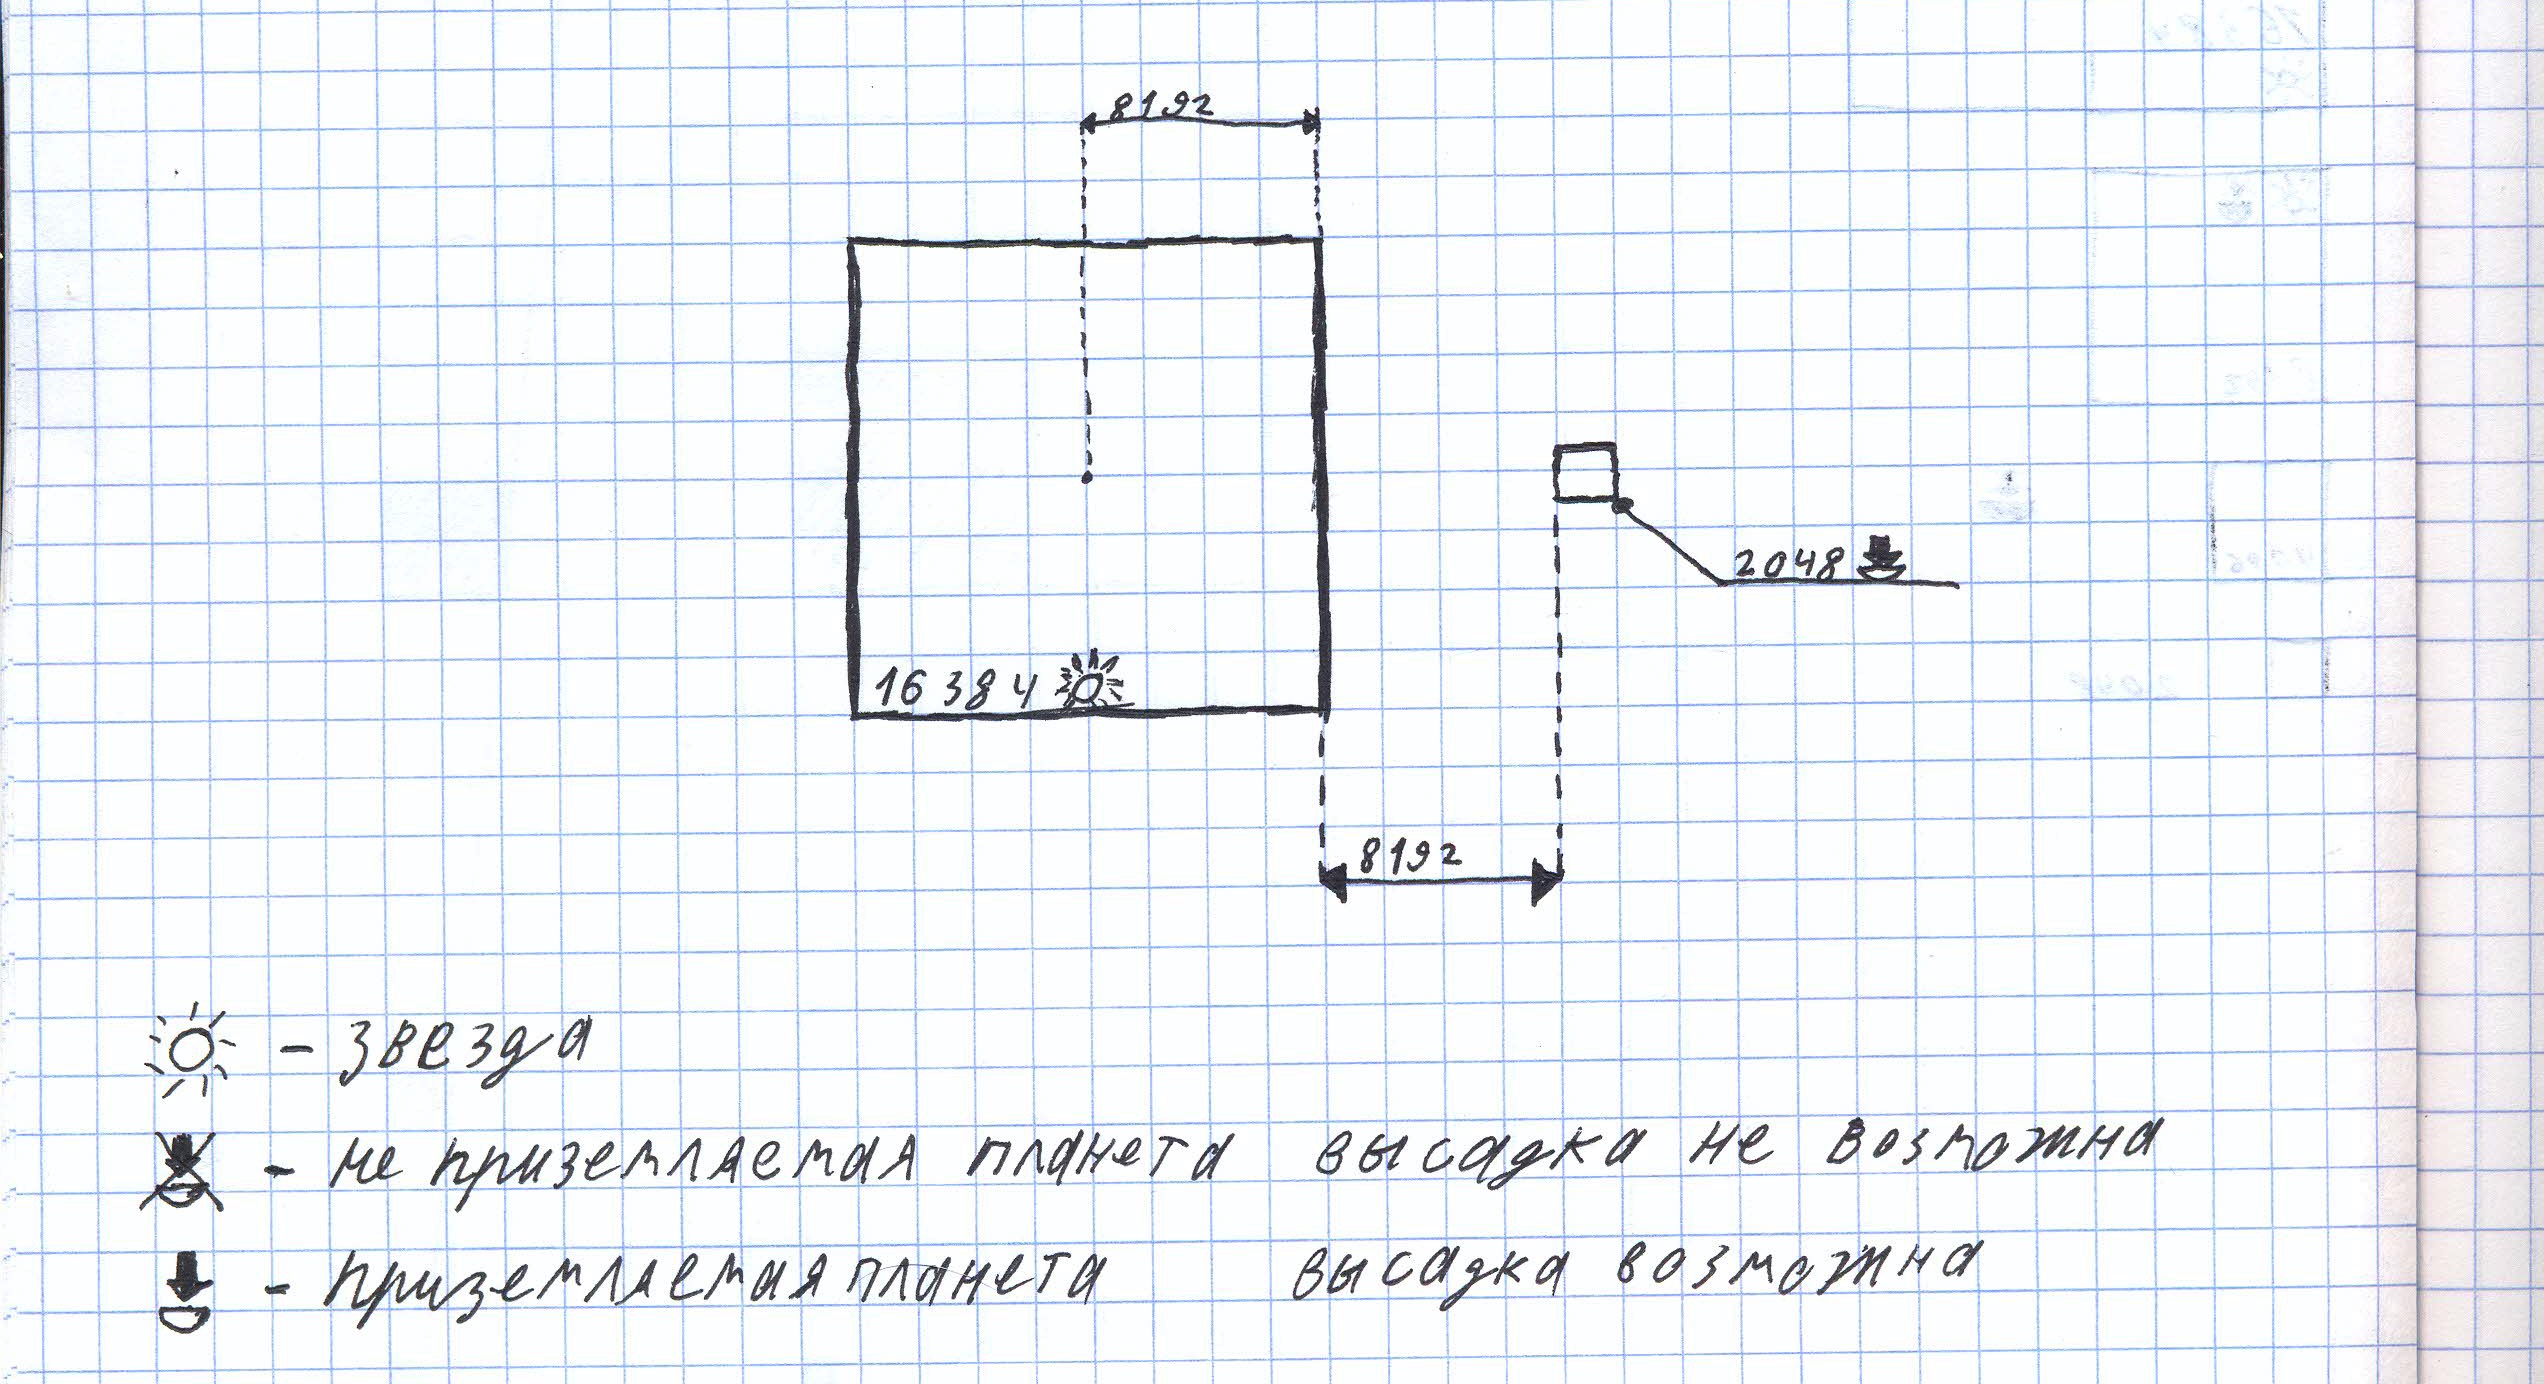 8192
2048
16 384
8192
- звезда
- не приземляемая планета высадка не возможна
- приземляемая планета высадка возможна